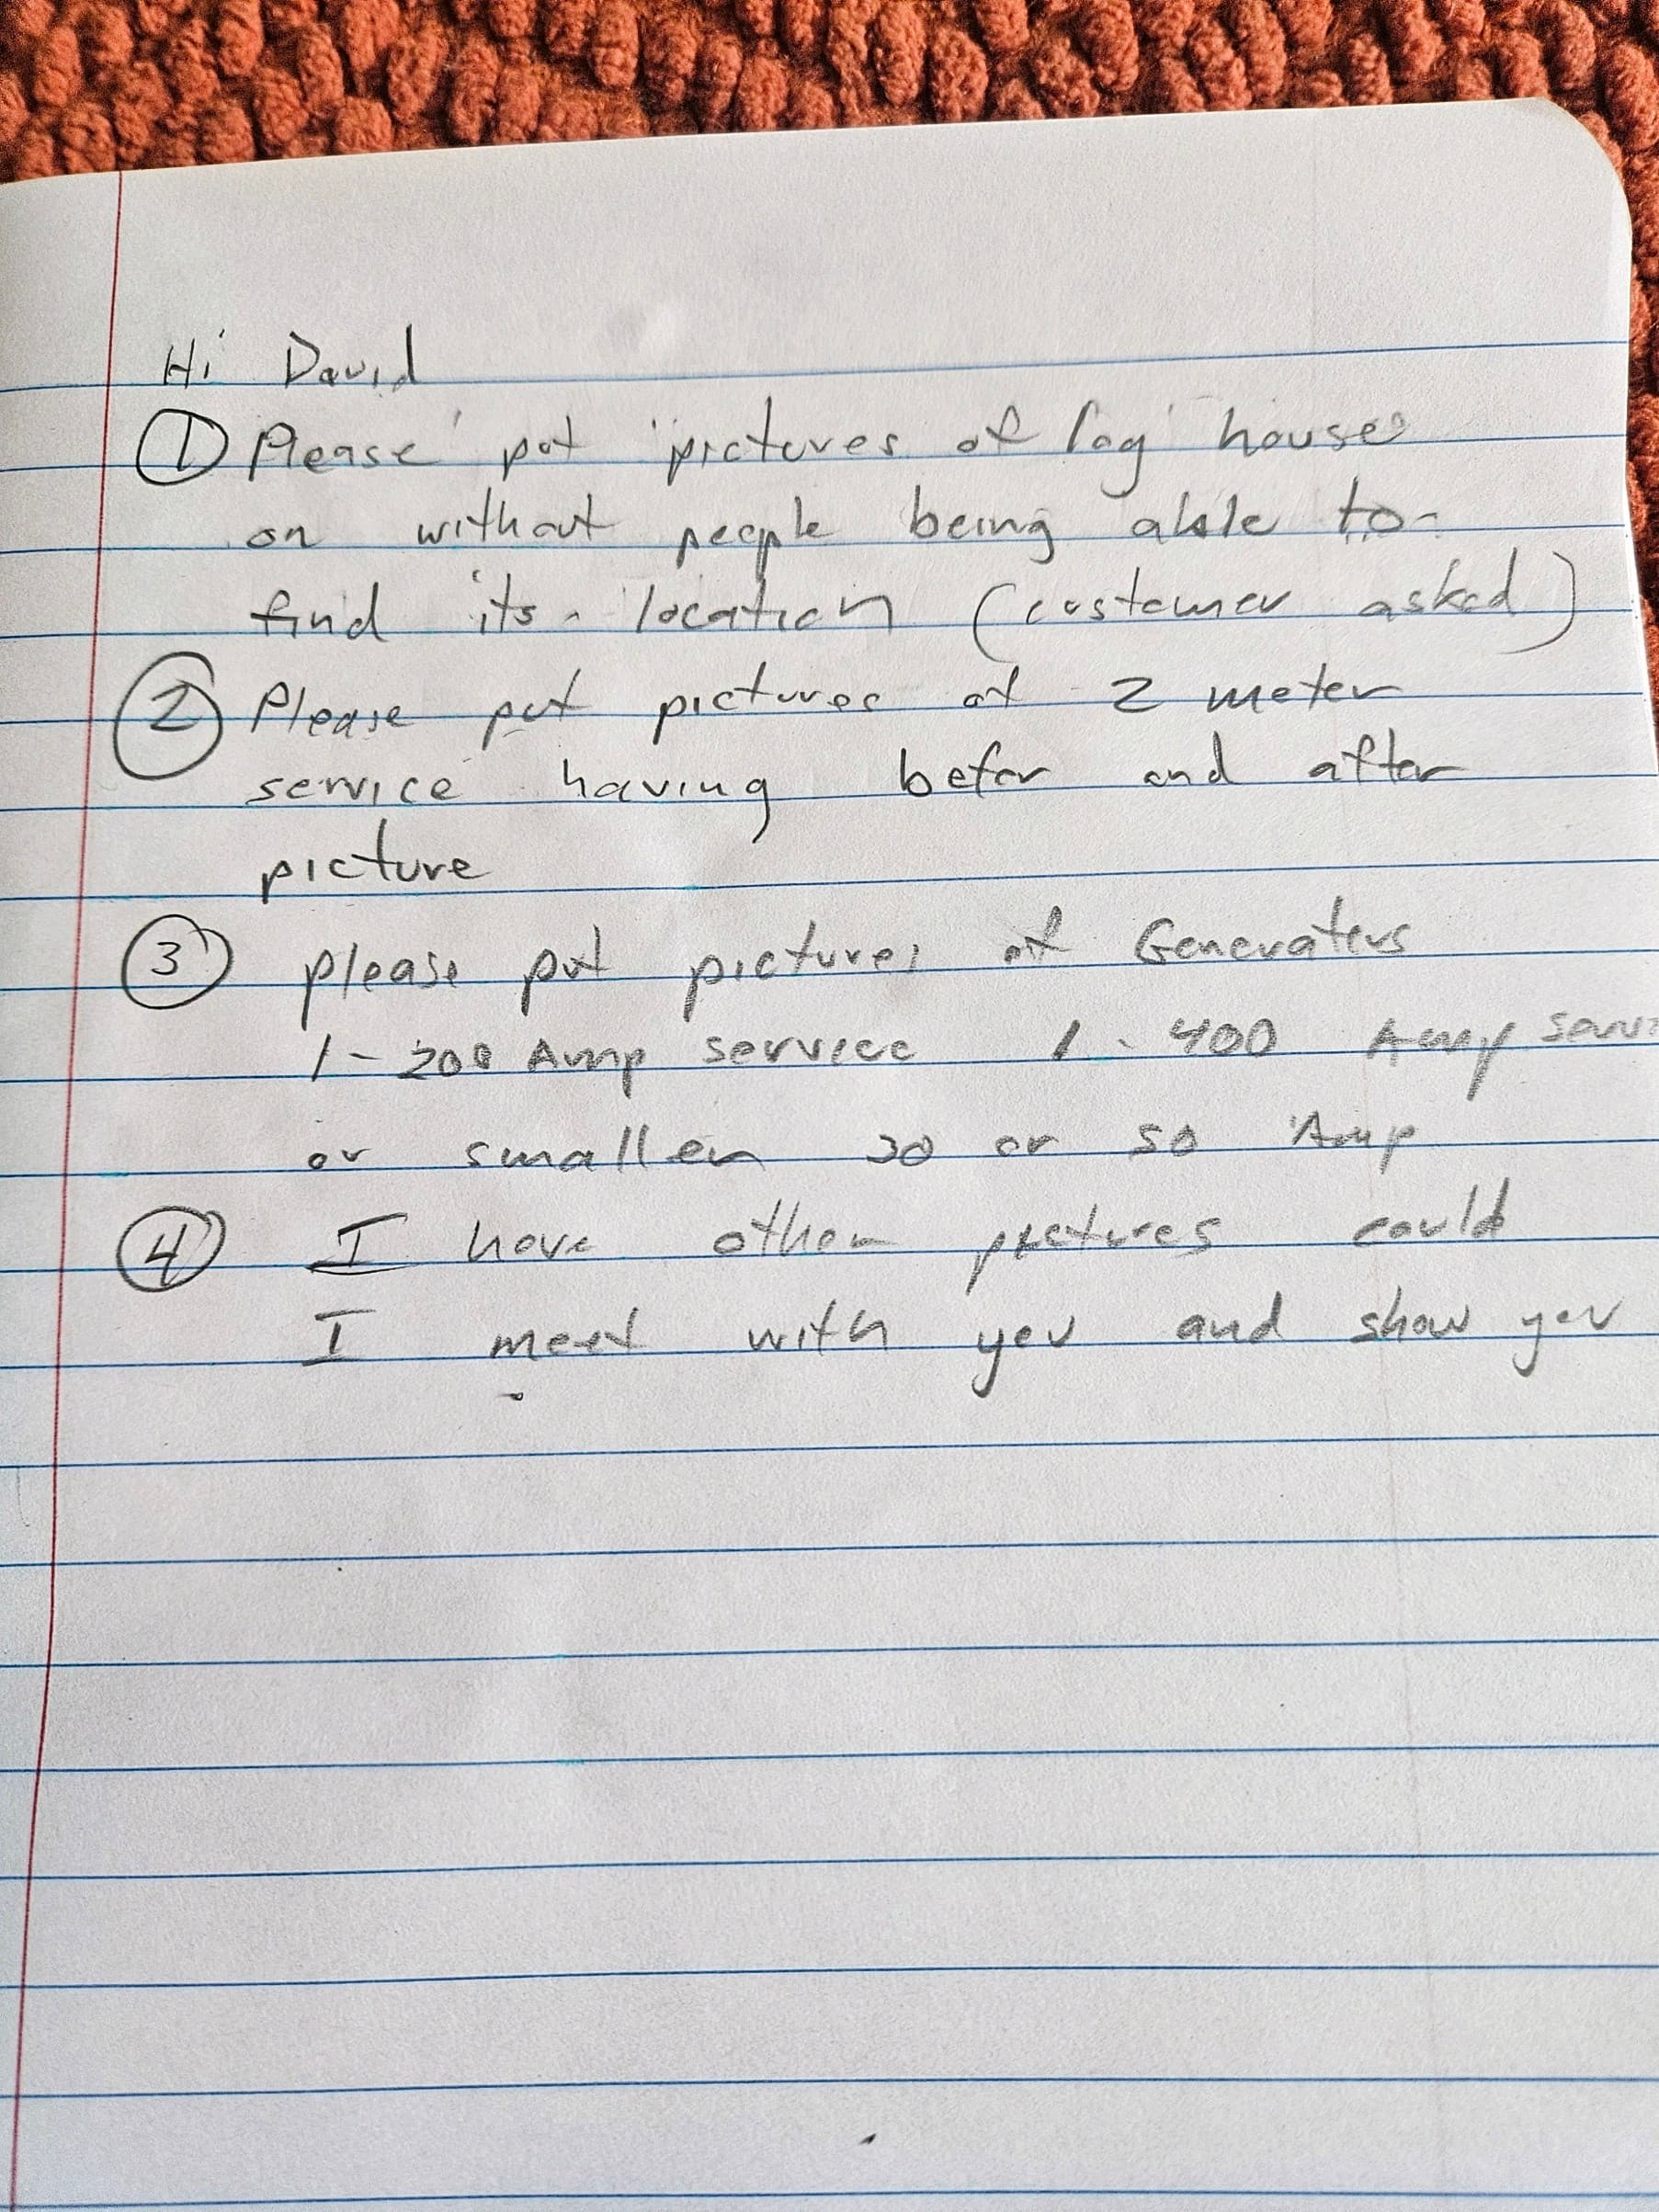 Hi David
① Please put pictures of log house
on without people being able to
find its location (customer asked)
② Please put pictures of 2 meter
service having befor and after
picture
③ please put pictures of Generators
1-200 Amp service 1-400 Amp servi
or smaller 30 or 50 Amp
④ I have other pictures could
I meet with you and show you